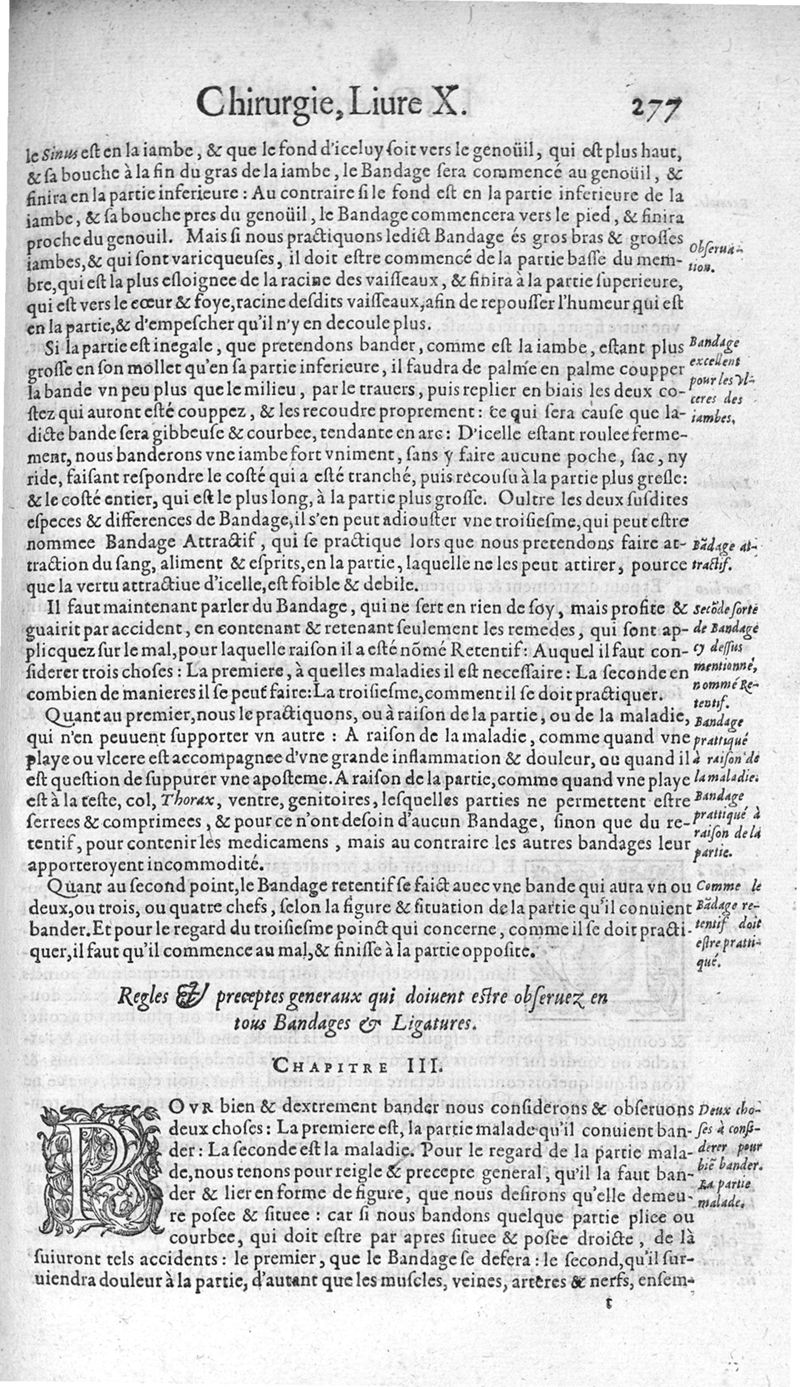 Chirurgie, Liure X. 277
le Sinus est en la iambe, & que le fond d'iceluy soit vers le genoüil, qui est plus haut,
& sa bouche à la fin du gras de la iambe, le Bandage sera commencé au genoüil, &
finira en la partie inferieure : Au contraire si le fond est en la partie inferieure de la
iambe, & sa bouche pres du genoüil, le Bandage commencera vers le pied, & finira
proche du genouil. Mais si nous practiquons ledict Bandage és gros bras & grosses
iambes, & qui sont varicqueuses, il doit estre commencé de la partie basse du mem-
bre, qui est la plus esloignee de la racine des vaisseaux, & finira à la partie superieure,
qui est vers le cœur & foye, racine desdits vaisseaux, afin de repousser l'humeur qui est
en la partie, & d'empescher qu'il n'y en decoule plus.
Obserua-
tion.
Si la partie est inegale, que pretendons bander, comme est la iambe, estant plus
grosse en son mollet qu'en sa partie inferieure, il faudra de palme en palme coupper
la bande vn peu plus que le milieu, par le trauers, puis replier en biais les deux co-
stez qui auront esté couppez, & les recoudre proprement : ce qui sera cause que la-
dicte bande sera gibbeuse & courbee, tendante en arc : D'icelle estant roulee ferme-
ment, nous banderons vne iambe fort vniment, sans y faire aucune poche, sac, ny
ride, faisant respondre le costé qui a esté tranché, puis recousu à la partie plus gresle:
& le costé entier, qui est le plus long, à la partie plus grosse. Oultre les deux susdites
especes & differences de Bandage, il s'en peut adiouster vne troisiesme, qui peut estre
nommee Bandage Attractif, qui se practique lors que nous pretendons faire at-
traction du sang, aliment & esprits, en la partie, laquelle ne les peut attirer, pource
que la vertu attractiue d'icelle, est foible & debile.
Bandage
excellent
pour les vl-
ceres des
iambes.
Bādage at-
tractif.
Il faut maintenant parler du Bandage, qui ne sert en rien de soy, mais profite &
guairit par accident, en contenant & retenant seulement les remedes, qui sont ap-
plicquez sur le mal, pour laquelle raison il a esté nõmé Retentif : Auquel il faut con-
siderer trois choses : La premiere, à quelles maladies il est necessaire : La seconde en
combien de manieres il se peut faire: La troisiesme, comment il se doit practiquer.
Secõde sorte
de Bandage
cy dessus
mentionné,
nommé Re-
tentif.
Quant au premier, nous le practiquons, ou à raison de la partie, ou de la maladie,
qui n'en peuuent supporter vn autre : A raison de la maladie, comme quand vne
playe ou vlcere est accompagnee d'vne grande inflammation & douleur, ou quand il
est question de suppurer vne aposteme. A raison de la partie, comme quand vne playe
est à la teste, col, Thorax, ventre, genitoires, lesquelles parties ne permettent estre
serrees & comprimees, & pour ce n'ont besoin d'aucun Bandage, sinon que du re-
tentif, pour contenir les medicamens, mais au contraire les autres bandages leur
apporteroyent incommodité.
Bandage
prattiqué
à raison de
la maladie.
Bandage
prattiqué à
raison de la
partie.
Quant au second point, le Bandage retentif se faict auec vne bande qui aura vn ou
deux, ou trois, ou quatre chefs, selon la figure & situation de la partie qu'il conuient
bander. Et pour le regard du troisiesme poinct qui concerne, comme il se doit practi-
quer, il faut qu'il commence au mal, & finisse à la partie opposite.
Comme le
Bādage re-
tentif doit
estre pratti-
qué.
Regles & preceptes generaux qui doiuent estre obseruez en
tous Bandages & Ligatures.
CHAPITRE III.
POVR bien & dextrement bander nous considerons & obseruons
deux choses : La premiere est, la partie malade qu'il conuient ban-
der : La seconde est la maladie. Pour le regard de la partie mala-
de, nous tenons pour reigle & precepte general, qu'il la faut ban-
der & lier en forme de figure, que nous desirons qu'elle demeu-
re posee & situee : car si nous bandons quelque partie pliee ou
courbee, qui doit estre par apres situee & posee droicte, de là
suiuront tels accidents : le premier, que le Bandage se defera : le second, qu'il sur-
uiendra douleur à la partie, d'autant que les muscles, veines, arteres & nerfs, ensem-
Deux cho-
ses à consi-
derer pour
biē bander.
La partie
malade.
t